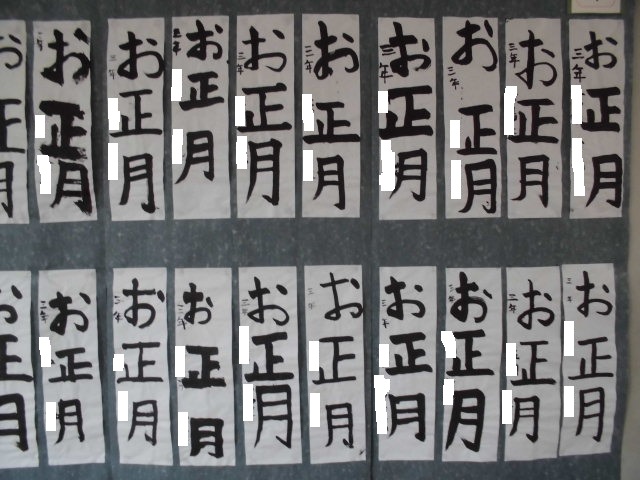 お正月
三年
お正月
三年
お正月
三年
お正月
三年
お正月
三年
お正月
三年
お正月
三年
お正月
三年
お正月
三年
お正月
お正月
三年
お正月
三年
お正月
三年
お正月
三年
お正月
三年
お正月
三年
お正月
三年
お正月
三年
お正月
三年
お正月